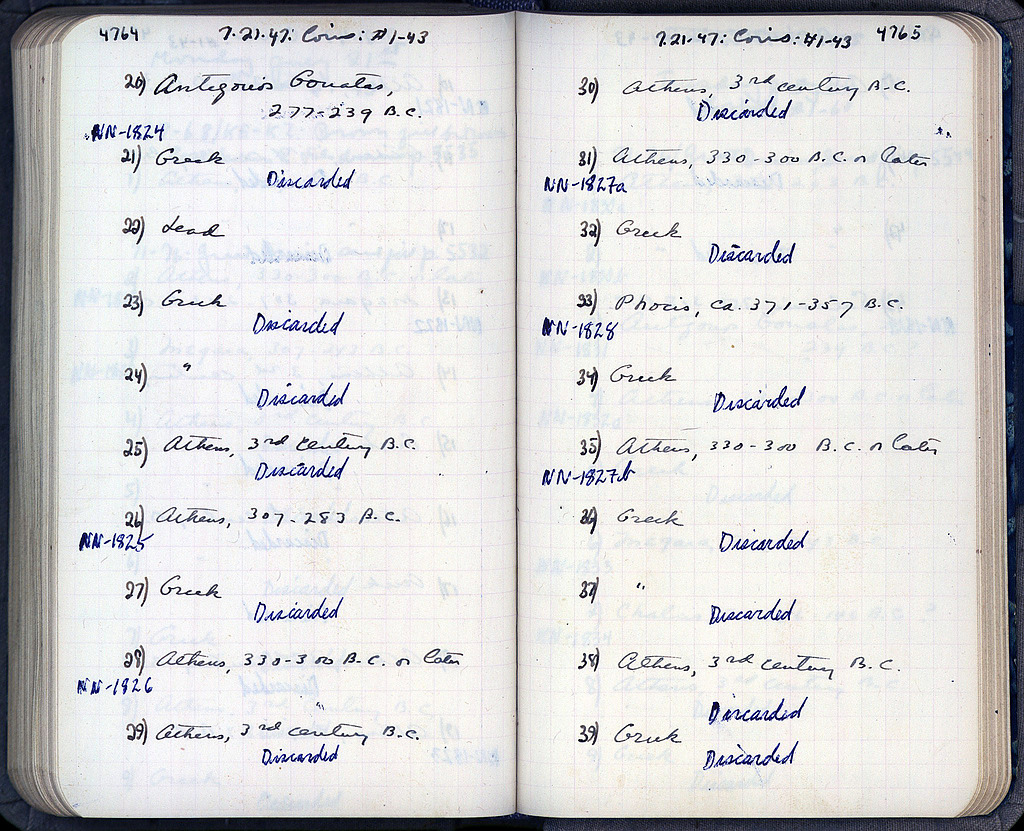 4764 7.21.47: Coins: #1-43
20) Antigonos Gonatas,
277-239 B.C.
NN-1824
21) Greek
Discarded
22) Lead
23) Greek
Discarded
24) "
Discarded
25) Athens, 3rd century B.C.
Discarded
26) Athens, 307-283 B.C.
NN-1825
27) Greek
Discarded
28) Athens, 330-300 B.C. or later
NN-1826
29) Athens, 3rd century B.C.
Discarded
7.21.47: Coins: #1-43 4765
30) Athens, 3rd century B.C.
Discarded
31) Athens, 330-300 B.C. or later
NN-1827a
32) Greek
Discarded
33) Phocis, ca. 371-357 B.C.
NN-1828
34) Greek
Discarded
35) Athens, 330-300 B.C. or later
NN-1827b
36) Greek
Discarded
37) "
Discarded
38) Athens, 3rd century B.C.
Discarded
39) Greek
Discarded